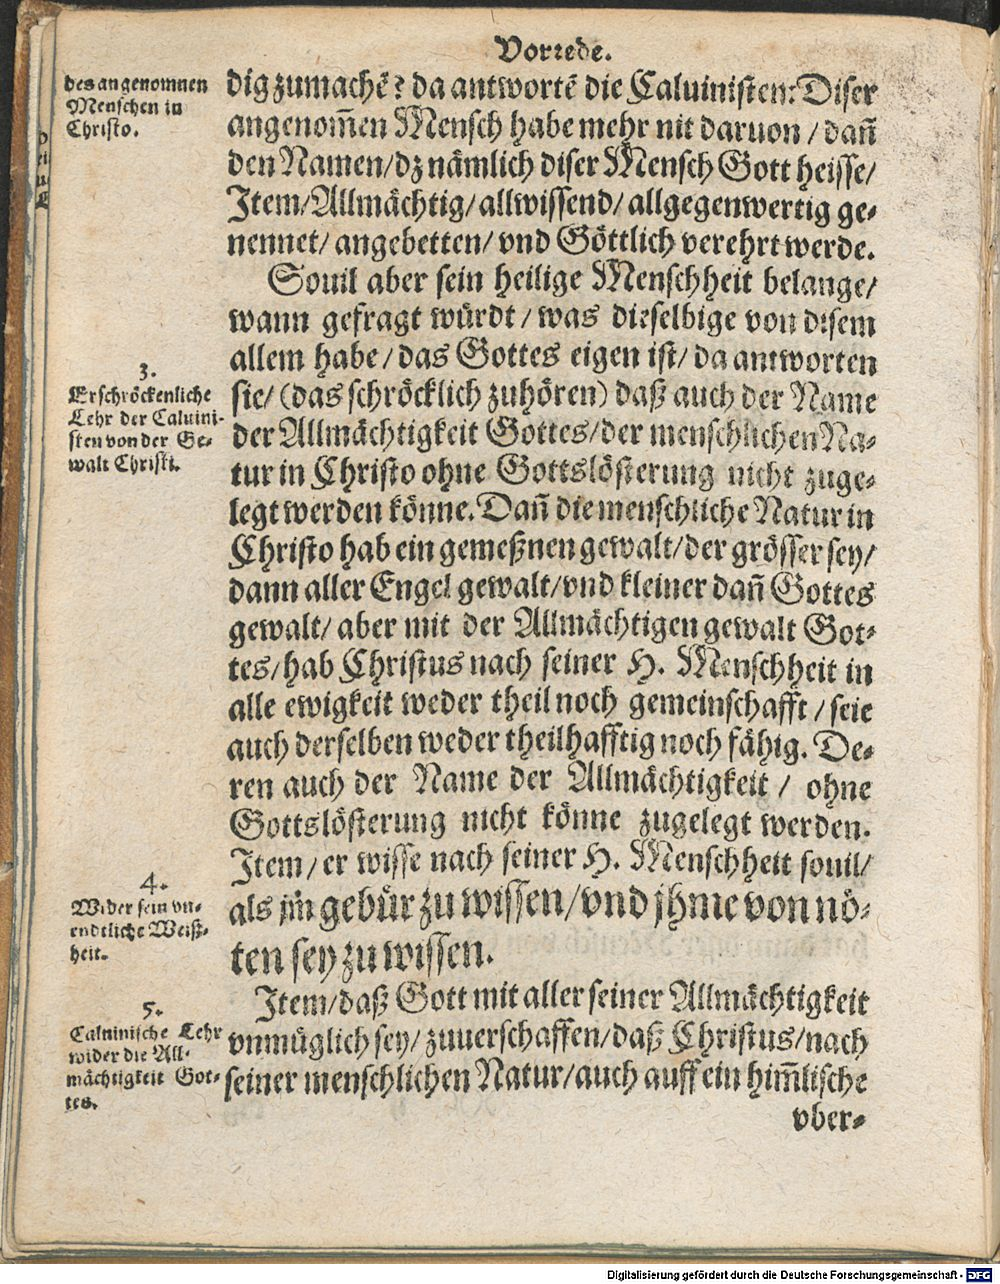 Vorrede.
des angenomnen
Menschen in
Christo.
dig zumachẽ? da antwortẽ die Caluinisten: Diser
angenom̃en Mensch habe mehr nit daruon / dañ
den Namen/dz nämlich diser Mensch Gott heisse/
Item/Allmächtig/allwissend/allgegenwertig ge-
nennet/angebetten/vnd Göttlich verehrt werde.
Souil aber sein heilige Menschheit belange/
wann gefragt würdt / was dieselbige von disem
allem habe/das Gottes eigen ist/da antworten
3.
Erschröckenliche
Lehr der Caluini-
sten von der Ge-
walt Christi.
sie/(das schröcklich zuhören) daß auch der Name
der Allmächtigkeit Gottes/der menschlichen Na-
tur in Christo ohne Gottslösterung nicht zuge-
legt werden könne. Dañ die menschliche Natur in
Christo hab ein gemeßnen gewalt/der grösser sey/
dann aller Engel gewalt/vnd kleiner dañ Gottes
gewalt/aber mit der Allmächtigen gewalt Got-
tes/hab Christus nach seiner H. Menschheit in
alle ewigkeit weder theil noch gemeinschafft / seie
auch derselben weder theilhafftig noch fähig. De-
ren auch der Name der Allmächtigkeit / ohne
Gottslösterung nicht könne zugelegt werden.
Item/er wisse nach seiner H. Menschheit souil/
4.
Wider sein vn-
endtliche Weiß-
heit.
als jm̃ gebür zu wissen/vnd jhme von nö-
ten sey zu wissen.
Item/daß Gott mit aller seiner Allmächtigkeit
5.
Caluinische Lehr
wider die All-
mächtigkeit Got-
tes.
vnmüglich sey/zuuerschaffen/daß Christus/nach
seiner menschlichen Natur/auch auff ein him̃lische
vber-
Digitalisierung gefördert durch die Deutsche Forschungsgemeinschaft - DFG